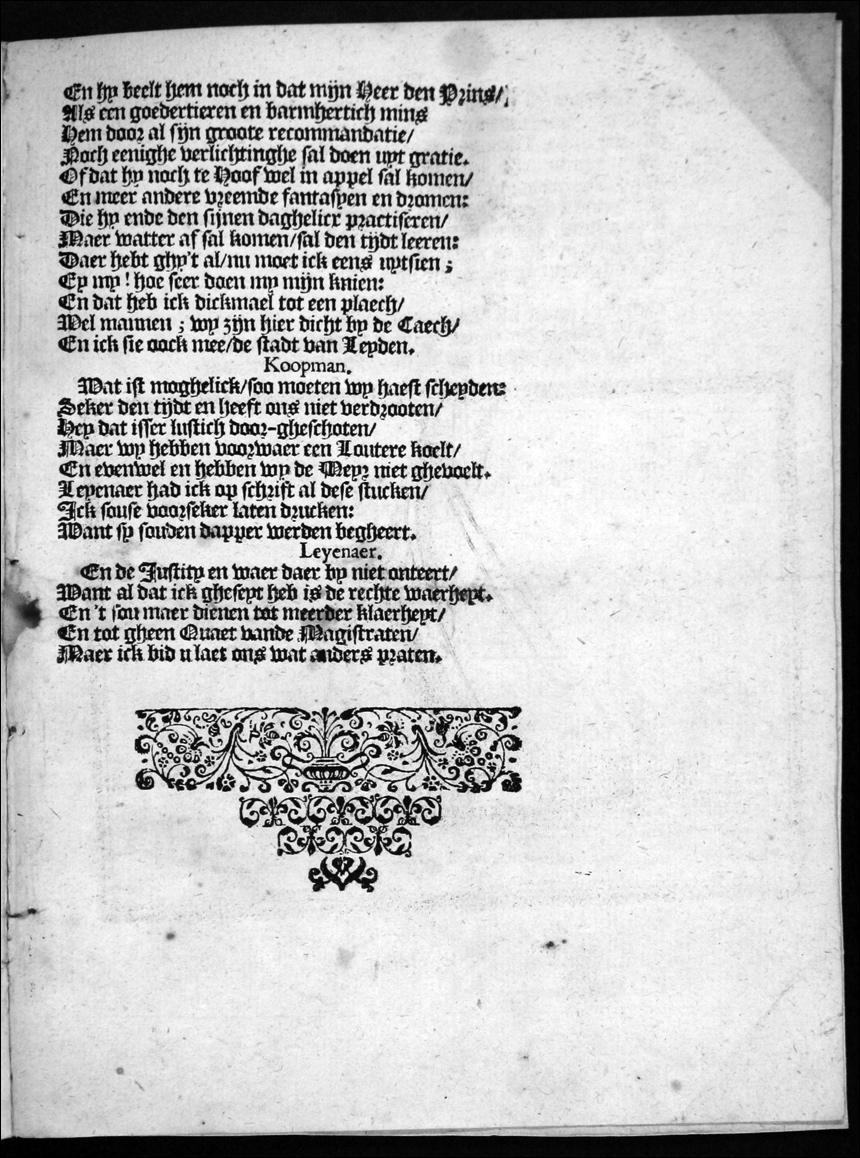 En hy beelt hem noch in dat mijn Heer den Prins/
Als een goedertieren en barmhertich mins
Hem door al sijn groote recommandatie/
Noch eenighe verlichtinghe sal doen uyt gratie.
Of dat hy noch te Hoof wel in appel sal komen/
En meer andere vreemde fantasyen en dromen:
Die hy ende den sijnen daghelicx practiseren/
Maer watter af sal komen/sal den tijdt leeren:
Daer hebt ghy't al/nu moet ick eens uytsien ;
Ey my ! hoe seer doen my mijn knien:
En dat heb ick dickmael tot een plaech/
Wel mannen ; wy zijn hier dicht by de Caech/
En ick sie oock mee/de stadt van Leyden.
Koopman.
Wat ist moghelick/soo moeten wy haest scheyden:
Seker den tijdt en heeft ons niet verdrooten/
Hey dat isser lustich door-gheschoten/
Maer wy hebben voorwaer een Loutere koelt/
En evenwel en hebben wy de Meyr niet ghevoelt.
Leyenaer had ick op schrift al dese stucken/
Ick souse voorseker laten drucken:
Want sy souden dapper werden begheert.
Leyenaer.
En de Justity en waer daer by niet onteert/
Want al dat ick gheseyt heb is de rechte waerheyt.
En 't sou maer dienen tot meerder klaerheyt/
En tot gheen Quaet vande Magistraten/
Maer ick bid u laet ons wat anders praten.